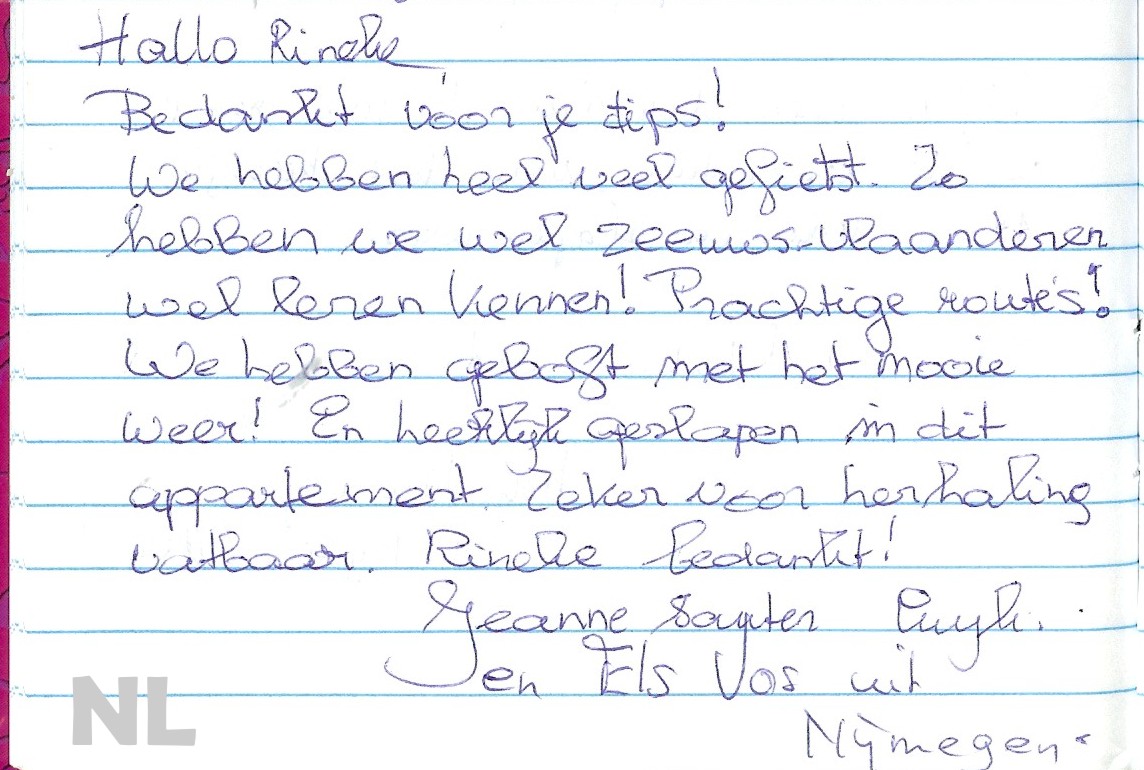 Hallo Rineke
Bedankt voor je tips!
We hebben heel veel gefietst. Zo
hebben we wel zeeuws-vlaanderen
wel leren kennen! Prachtige route's!
We hebben geboft met het mooie
weer! En heerlijk geslapen in dit
appartement. Zeker voor herhaling
vatbaar. Rineke bedankt!
Jeanne
en Els Vos uit
Nijmegen.
NL